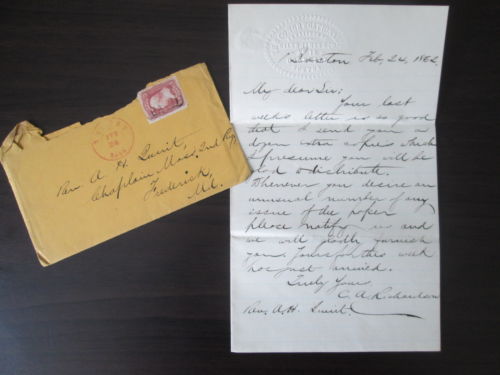 Boston Feb. 24, 1862.
My dear Sir:
Your last
weeks letter is so good
that I sent you a
dozen extra copies which
I presume you will be
glad to distribute.
Whenever you desire an
unusual number of any
issue of the paper
please notify us and
we will gladly furnish
you. Yours for this week
has just arrived.
Truly Yours,
C. A. Richardson
Rev. A. H. Quint
FEB
24
Rev. A. H. Quint
Chaplain Mass. 2nd Reg.
Frederick,
Md.